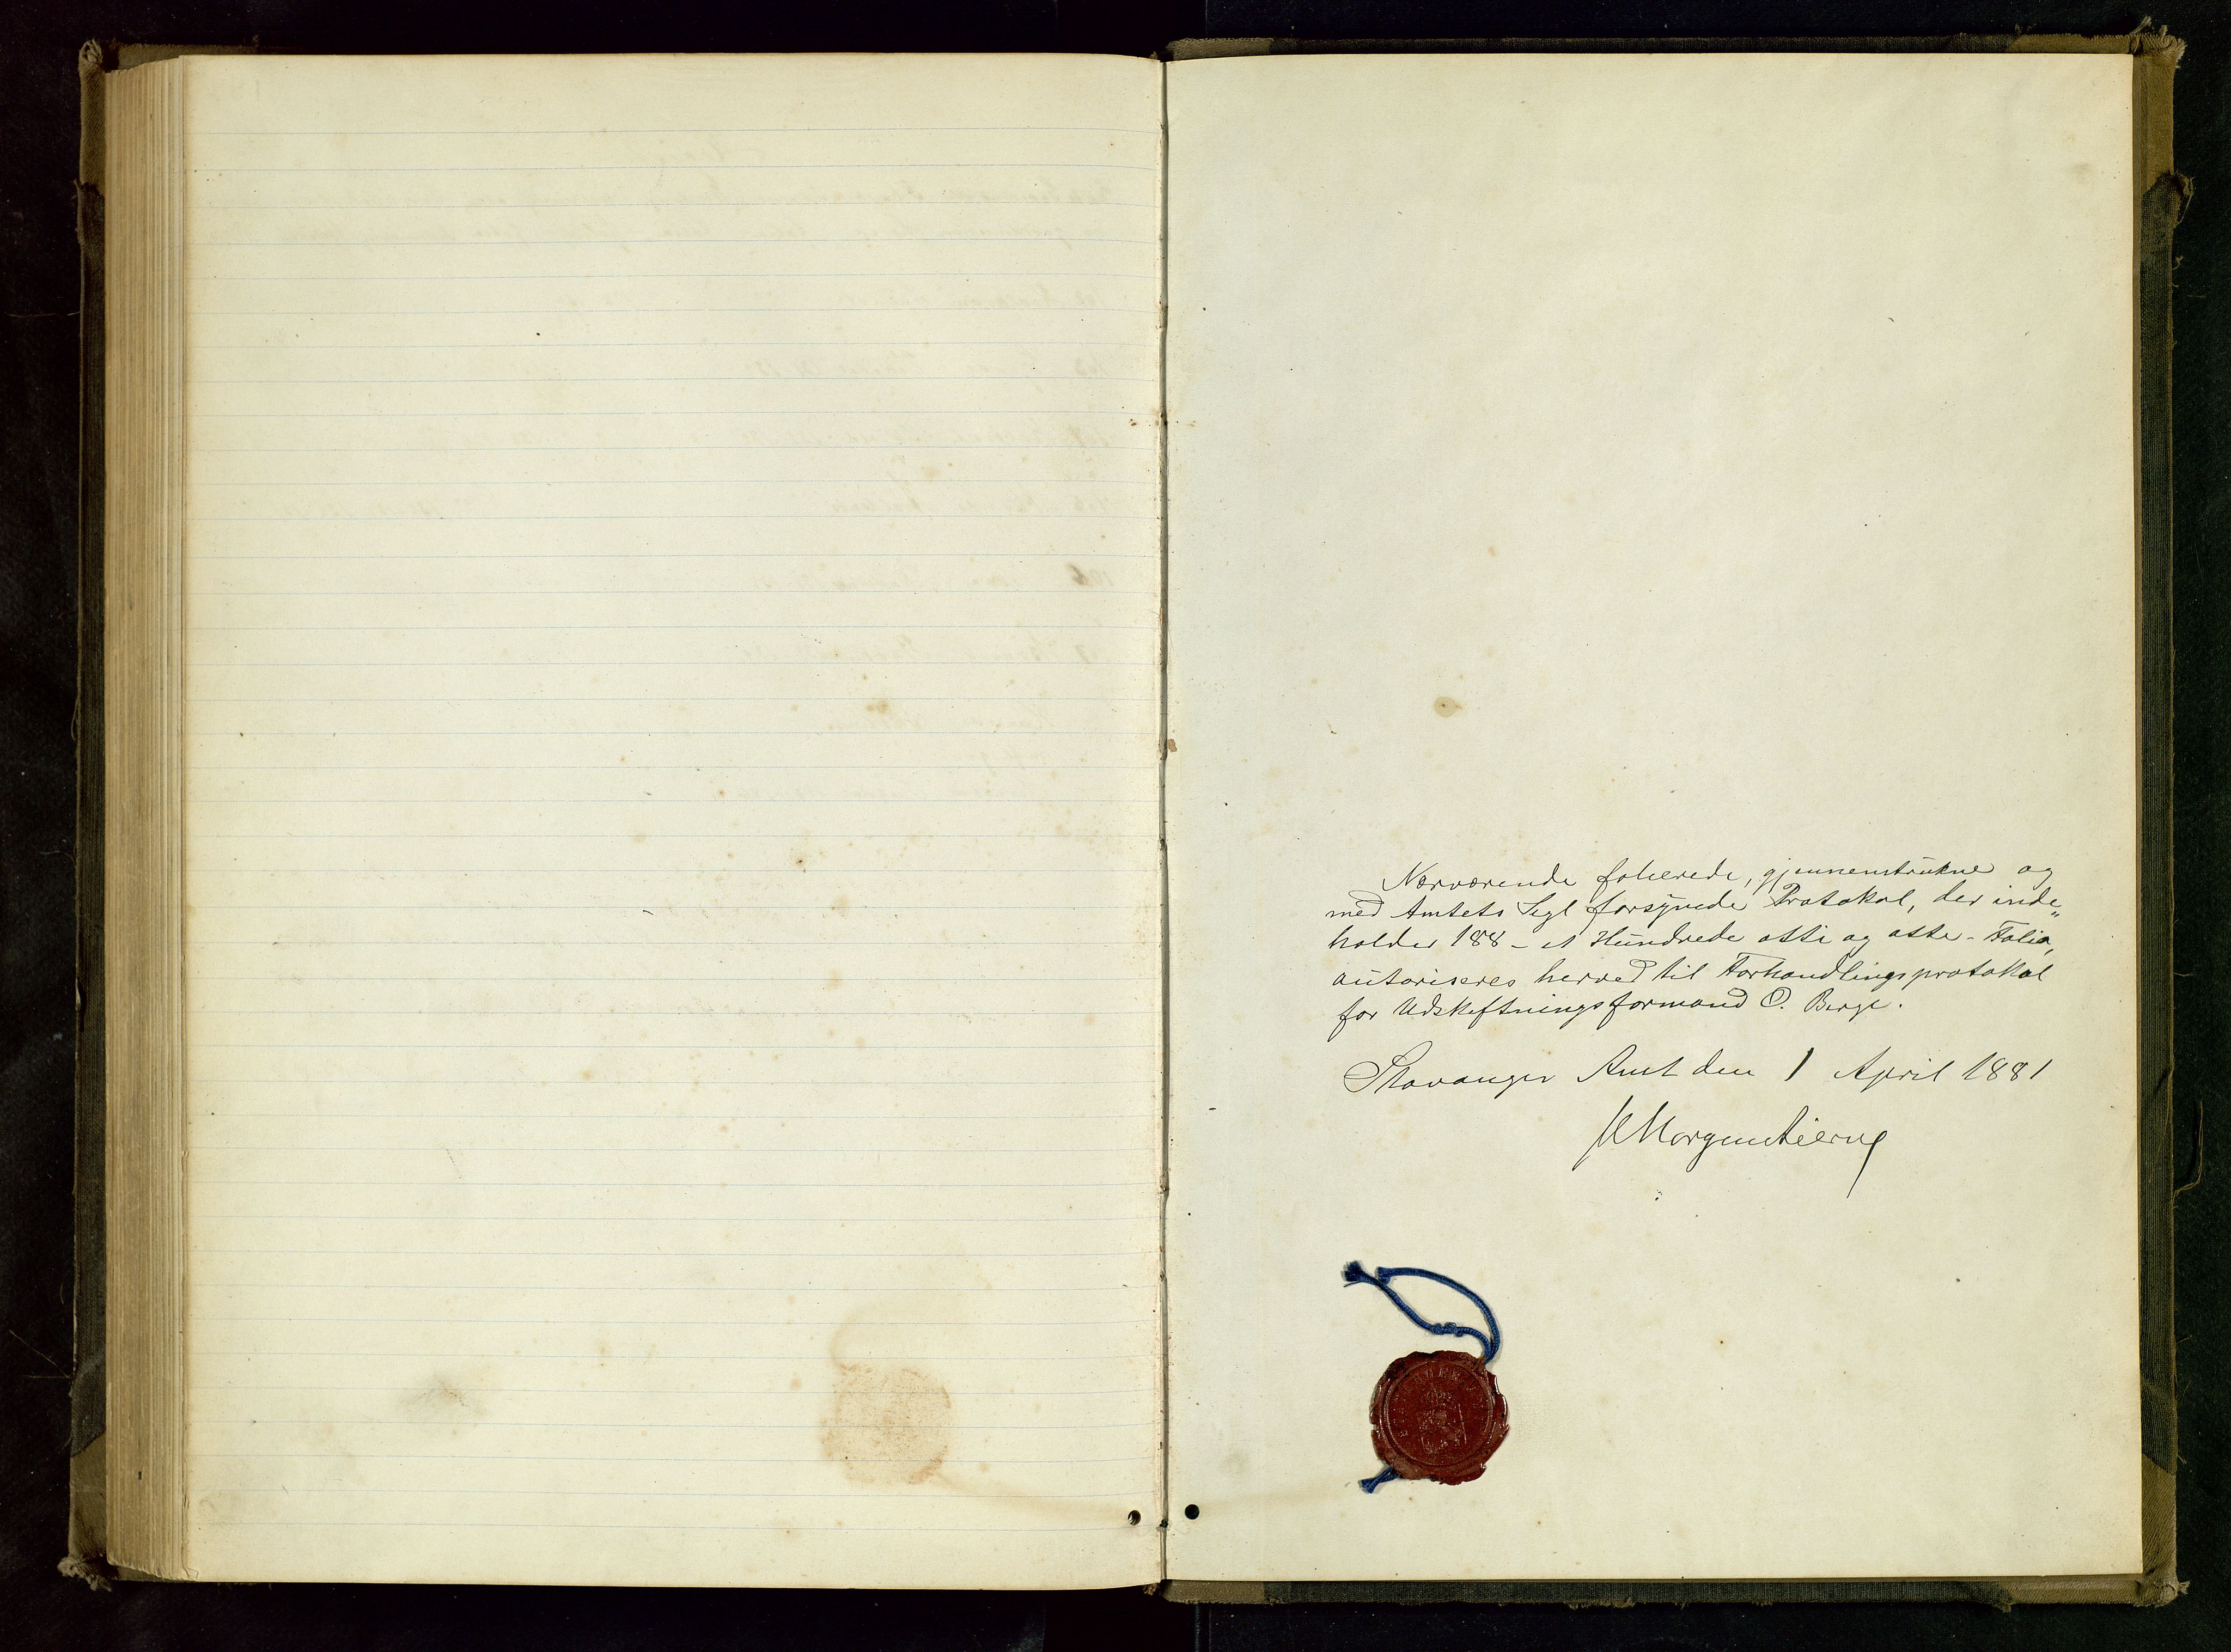 Nærværende folierede, gjennemtrukne og
med Amtets Segl forsynede Protokol, der inde„
holder 188 - et Hundrede otti og otte - Folio,
autoriseres herved til Forhandlingsprotokol
for Udskiftningsformand O. Berge.
Stavanger Amt den 1 April 1881
Morgenstierne